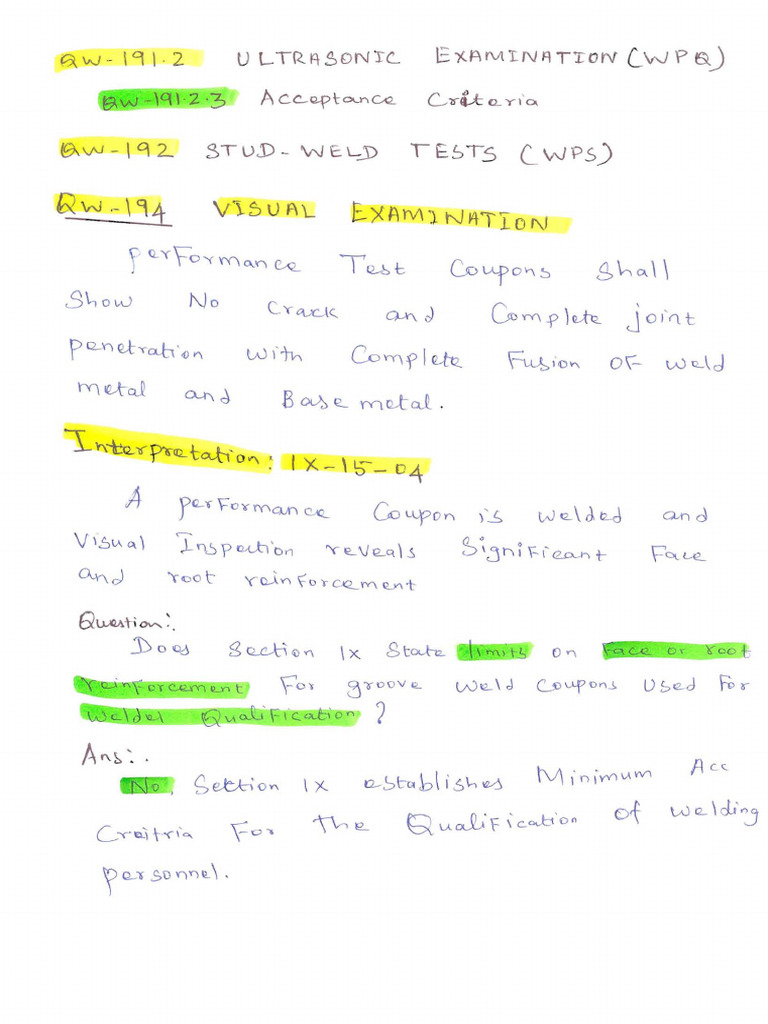 QW-191.2 ULTRASONIC EXAMINATION (WPQ)
QW-191.2.3 Acceptance Criteria
QW-192 STUD-WELD TESTS (WPS)
QW-194 VISUAL EXAMINATION
performance Test Coupons shall
Show No crack and Complete joint
penetration with Complete Fusion OF weld
metal and Base metal.
Interpretation: IX-15-04
A performance Coupon is welded and
Visual Inspection reveals Significant Face
and root reinforcement
Question:.
Does Section IX State limits on Face or root
reinforcement For groove weld coupons used For
Welder Qualification ?
Ans:.
No, Section IX establishes Minimum Acc
Creitria For the Qualification of welding
personnel.